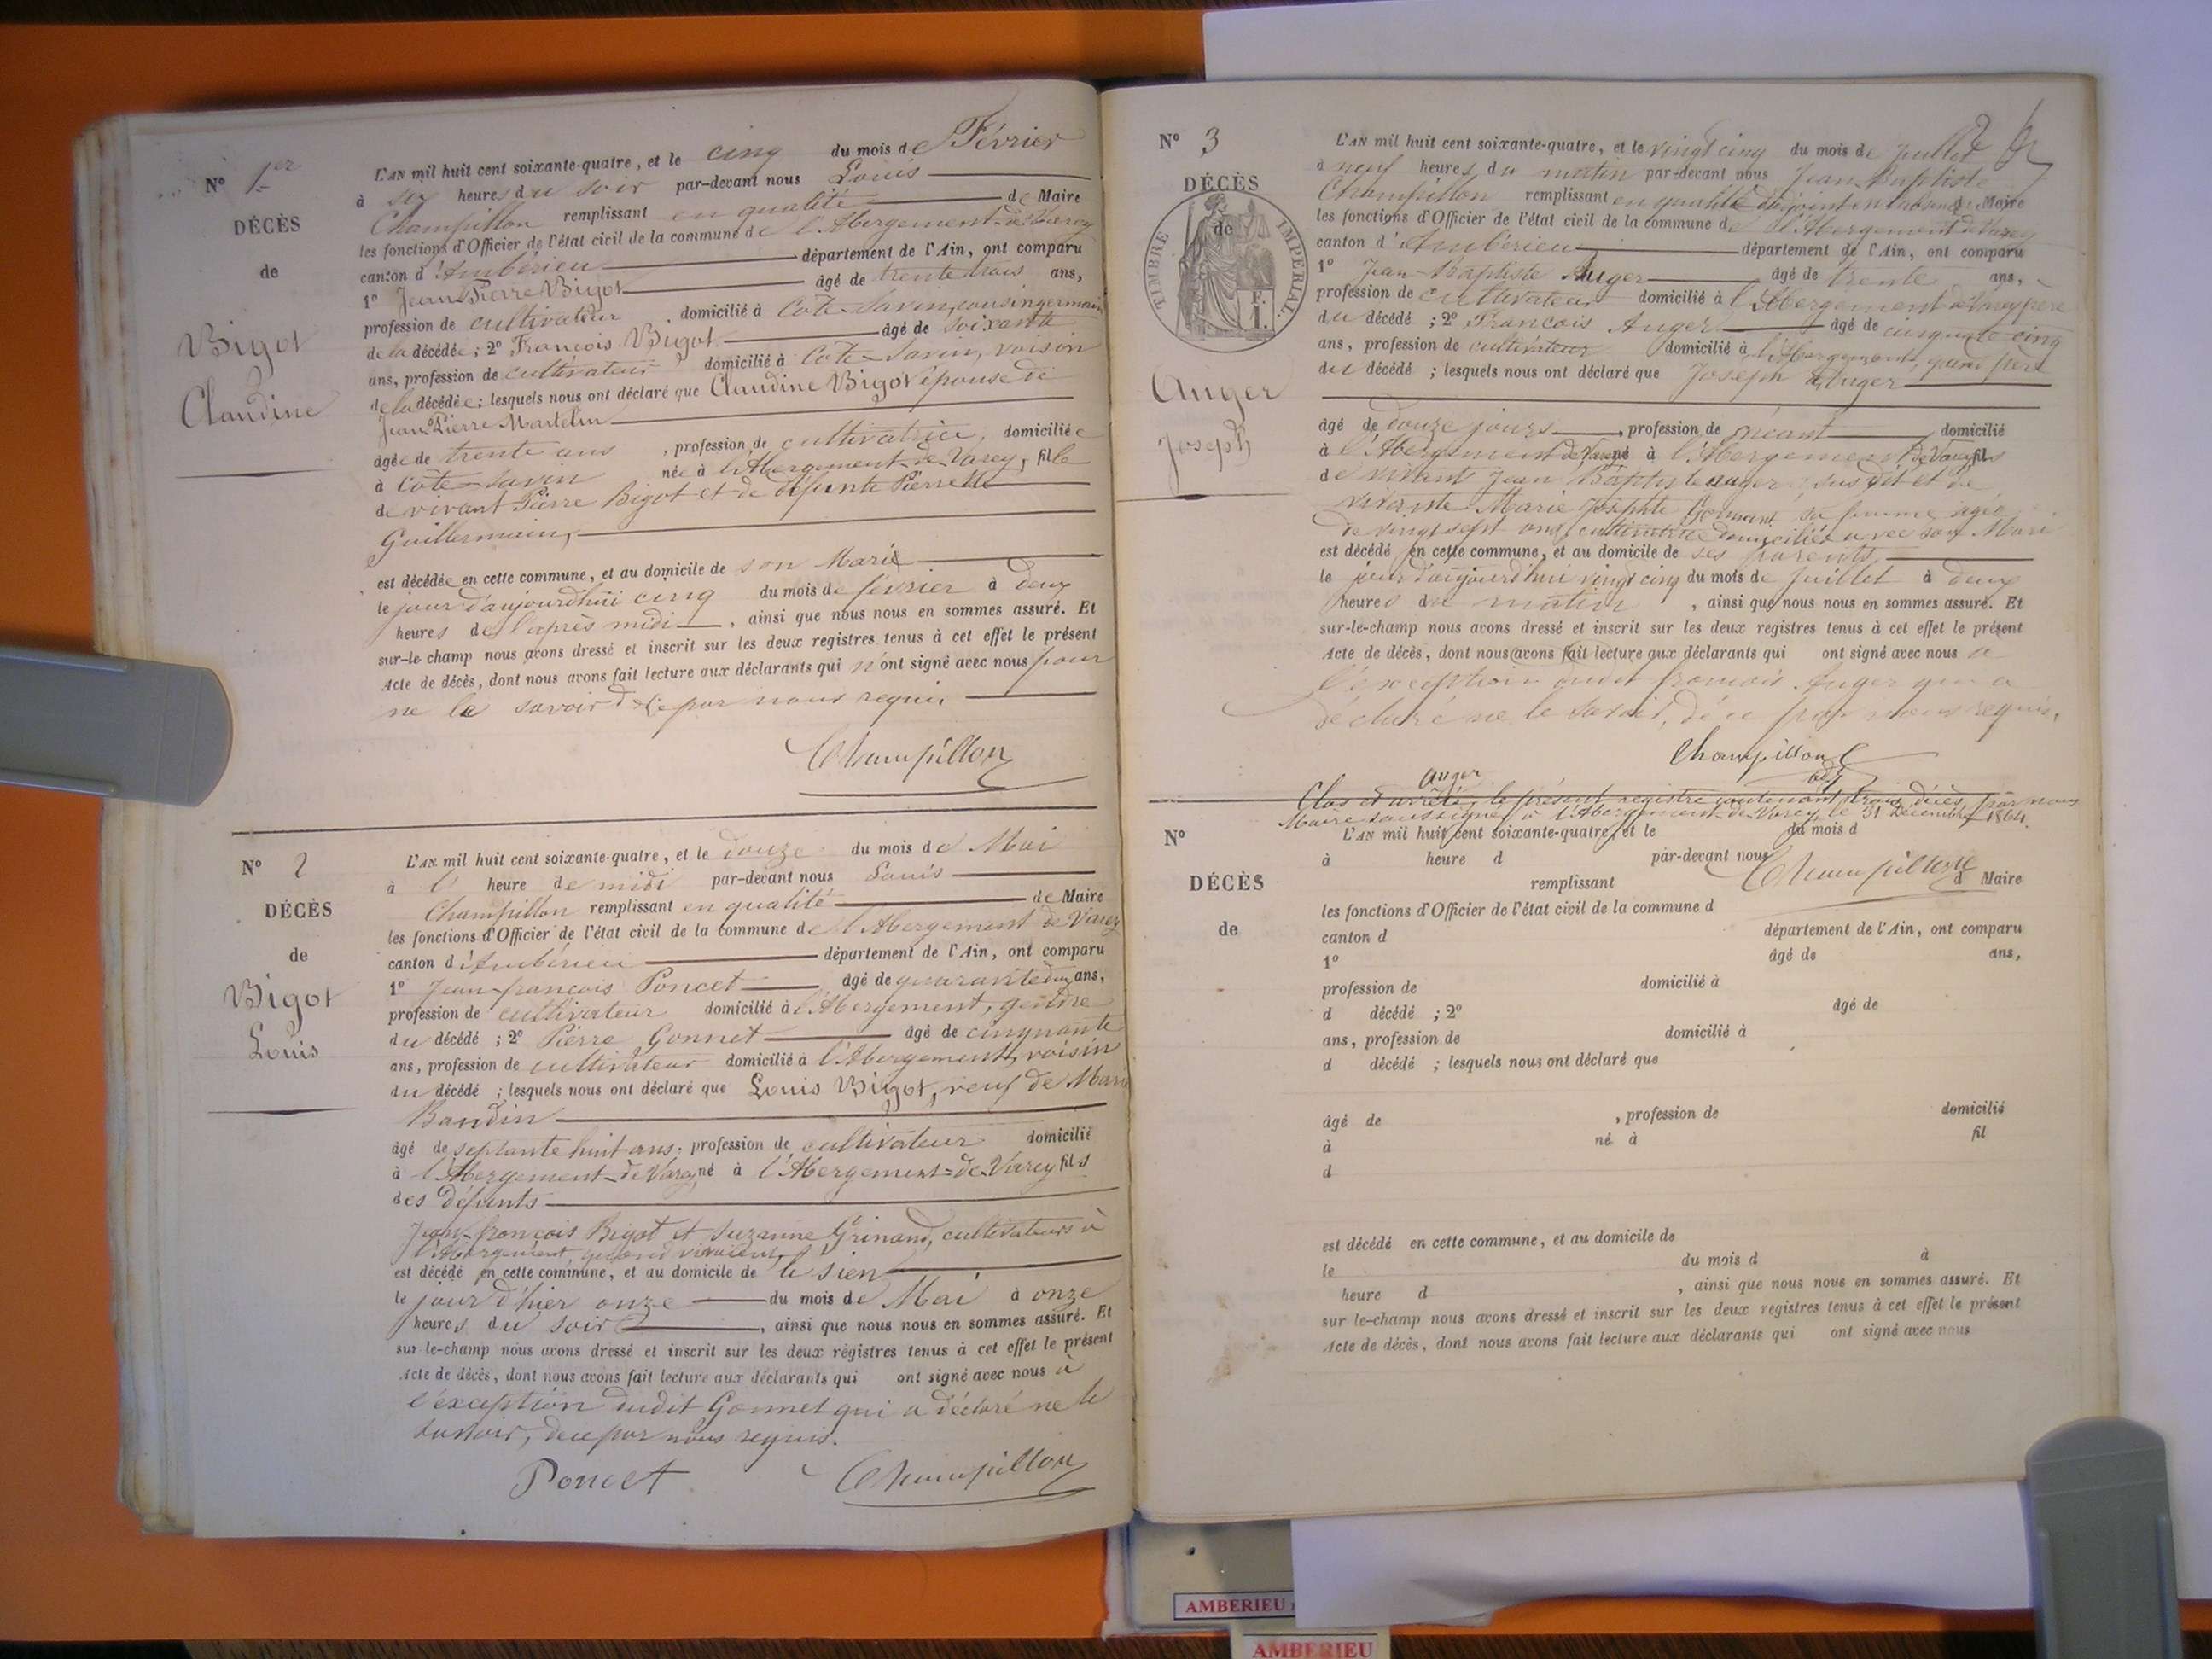 N° 1er
DÉCÈS
de
Bigot
Claudine
L'AN mil huit cent soixante-quatre, et le cinq du mois de Février
à six heures du soir par-devant nous Louis
Champillon remplissant en qualité de Maire
les fonctions d'Officier de l'état civil de la commune de l'Abergement-de-Varey
canton d'Ambérieu département de l'Ain, ont comparu
1° Jean-Pierre Bigot âgé de trente trois ans,
profession de cultivateur domicilié à Côte-Savin, cousin germain
de la décédée; 2° François Bigot âgé de soixante
ans, profession de cultivateur domicilié à Côte-Savin, voisin
de la décédée; lesquels nous ont déclaré que Claudine Bigot épouse de
Jean-Pierre Martelin
âgée de trente ans, profession de cultivatrice, domiciliée
à Côte-Savin née à l'Abergement-de-Varey, fille
de vivant Pierre Bigot et de défunte Pierrette
Guillermain,
est décédée en cette commune, et au domicile de son Marie
le jour d'aujourdhui cinq du mois de février à deux
heures de l'après midi, ainsi que nous nous en sommes assuré. Et
sur-le-champ nous avons dressé et inscrit sur les deux registres tenus à cet effet le présent
Acte de décès, dont nous avons fait lecture aux déclarants qui n'ont signé avec nous pour
ne le savoir de ce par nous requis.
Champillon
N° 2
DÉCÈS
de
Bigot
Louis
L'AN mil huit cent soixante-quatre, et le douze du mois de Mai
à l' heure de midi par-devant nous Louis
Champillon remplissant en qualité de Maire
les fonctions d'Officier de l'état civil de la commune de l'Abergement de Varey
canton d'Ambérieu département de l'Ain, ont comparu
1° Jean-françois Poncet âgé de quarante deux ans,
profession de cultivateur domicilié à l'Abergement, gendre
du décédé; 2° Pierre Gonnet âgé de cinquante
ans, profession de cultivateur domicilié à l'Abergement, voisin
du décédé; lesquels nous ont déclaré que Louis Bigot, veuf de Marie
Baudin
âgé de septante huit ans, profession de cultivateur domicilié
à l'Abergement-de-Varey né à l'Abergement-de-Varey fils
des défunts
Jean-françois Bigot et Suzanne Grinand, cultivateurs à
l'Abergement, quand vivaient,
est décédé en cette commune, et au domicile de le sien
le jour d'hier onze du mois de Mai à onze
heures du soir, ainsi que nous nous en sommes assuré. Et
sur-le-champ nous avons dressé et inscrit sur les deux régistres tenus à cet effet le présent
Acte de décès, dont nous avons fait lecture aux déclarants qui ont signé avec nous à
l'exception dudit Gonnet qui a déclaré ne le
savoir, de ce par nous requis.
Poncet Champillon
N° 3
DÉCÈS
de
TIMBRE IMPERIAL
Auger
Joseph
L'AN mil huit cent soixante-quatre, et le vingt cinq du mois de Juillet
à neuf heures du matin par-devant nous Jean-Baptiste
Champillon remplissant en qualité d'adjoint en absence du Maire
les fonctions d'Officier de l'état civil de la commune de l'Abergement de Varey
canton d'Ambérieu département de l'Ain, ont comparu
1° Jean-Baptiste Auger âgé de trente ans,
profession de cultivateur domicilié à l'Abergement de Varey père
du décédé; 2° François Auger âgé de cinquante cinq
ans, profession de cultivateur domicilié à l'Abergement, grand père
du décédé; lesquels nous ont déclaré que Joseph Auger
âgé de douze jours, profession de néant domicilié
à l'Abergement de Varey né à l'Abergement de Varey fils
de vivant Jean Baptiste auger susdit et de
vivante Marie Josephte sa femme agée
de vingt sept ans, cultivatrice domiciliée avec son Mari
est décédé en cette commune, et au domicile de ses parents
le jour d'aujourd'hui vingt cinq du mois de Juillet à deux
heures du matin, ainsi que nous nous en sommes assuré. Et
sur-le-champ nous avons dressé et inscrit sur les deux registres tenus à cet effet le présent
Acte de décès, dont nous avons fait lecture aux déclarants qui ont signé avec nous a
l'exception dudit françois Auger qui a
déclaré ne le savoir, de ce par nous requis.
Auger Champillon
adj
Clos et arrêté, le présent registre contenant trois décès, par nous
Maire soussigné à l'Abergement-de-Varey, le 31 Décembre 1864.
Champillon
N°
DÉCÈS
de
L'AN mil huit cent soixante-quatre, et le du mois d
à heure d par-devant nous
remplissant d Maire
les fonctions d'Officier de l'état civil de la commune d
canton d département de l'Ain, ont comparu
1° âgé de ans,
profession de domicilié à
d décédé; 2° âgé de
ans, profession de domicilié à
d décédé; lesquels nous ont déclaré que
âgé de, profession de domicilié
à né à fil
d
est décédé en cette commune, et au domicile de
le du mois d à
heure d, ainsi que nous nous en sommes assuré. Et
sur-le-champ nous avons dressé et inscrit sur les deux registres tenus à cet effet le présent
Acte de décès, dont nous avons fait lecture aux déclarants qui ont signé avec nous
AMBERIEU
AMBERIEU